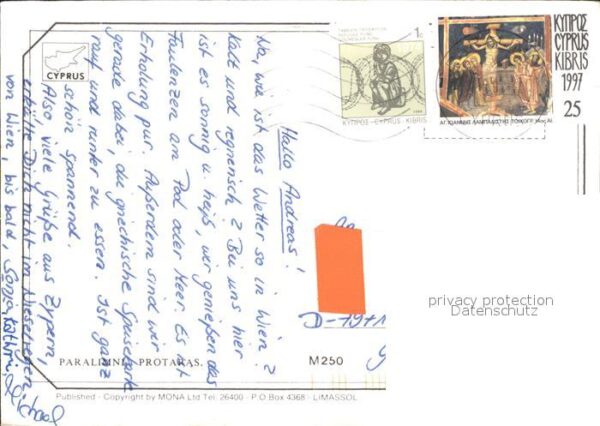 CYPRUS
Hallo Andreas!
Na, wie ist das Wetter so in Wien?
Kalt und regnerisch? Bei uns hier
ist es sonnig u. heiß, wir genießen das
Faulenzen am Pool oder Meer. Es ist
Erholung pur. Außerdem sind wir
gerade dabei, die griechische Speisekarte
rauf und runter zu essen. Ist ganz
schön spannend.
Also, viele Grüße aus Zypern,
erkälte Dich nicht im Nieselregen
von Wien, bis bald, Sonja, Kathrin,
1c
ΚΥΠΡΟΣ-CYPRUS-KIBRIS
ΚΥΠΡΟΣ
CYPRUS
KIBRIS
1997
25
privacy protection
Datenschutz
PARALIMNI - PROTARAS.
M250
Published - Copyright by MONA Ltd Tel. 26400 - P.O Box 4368 - LIMASSOL